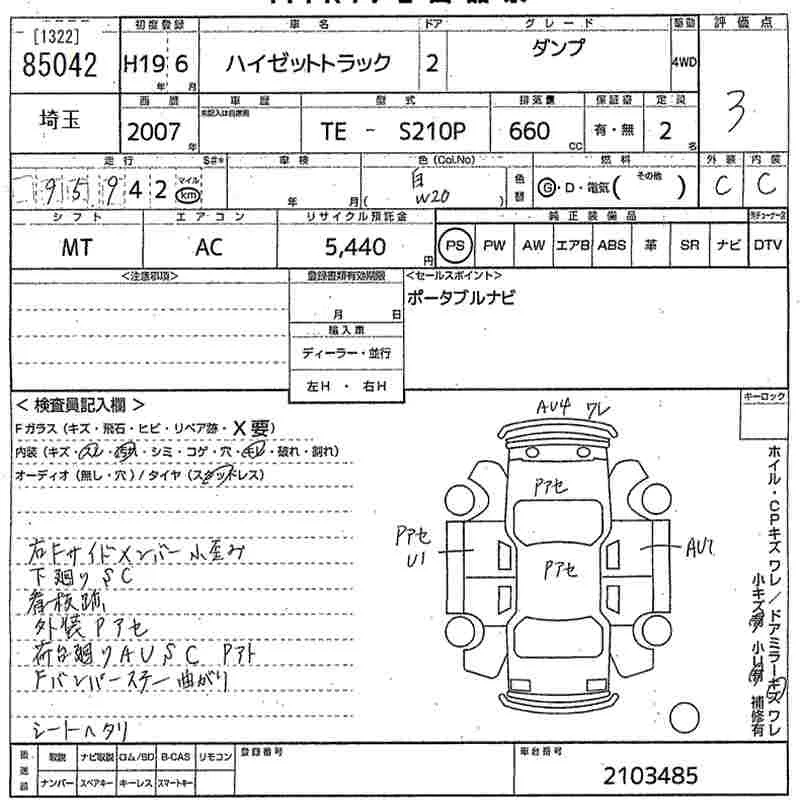 [1322]
85042
初度登録
H19 6
年 月
車名
ハイゼットトラック
ドア
2
グレード
ダンプ
駆動
4WD
評価点
3
埼玉
西暦
2007 年
車歴
未記入は自家用
型式
TE - S210P
排気量
660 CC
保証書
有・無
定員
2 名
走行
95942
マイル
km
S#*
車検
年 月
色 (Col.No)
白
W20
( )
色替
燃料
G・D・電気( その他 )
外装
C
内装
C
シフト
MT
エアコン
AC
リサイクル預託金
5,440 円
純正装備品
PS PW AW エアB ABS 革 SR ナビ
DTV
<注意事項>
登録書類有効期限
月 日
輸入車
ディーラー・並行
左H ・ 右H
<セールスポイント>
ポータブルナビ
< 検査員記入欄 >
Fガラス (キズ・飛石・ヒビ・リペア跡・X要)
内装 (キズ・スレ・汚れ・シミ・コゲ・穴・モレ・破れ・割れ)
オーディオ (無し・穴) / タイヤ (スタッドレス)
右Fサイドメンバー小歪み
下廻りSC
看板跡
外装Pアセ
荷台廻りAUSC Pアト
Fバンパーステー曲がり
シートヘタリ
キーロック
AU4 ワレ
Pアセ
Pアセ
U1
Pアセ
AU1
ホイル・CPキズ ワレ / ドアミラーキズ ワレ
小キズ有 小凹有 補修有
後送品
取説 ナビ取説 ロム/SD B-CAS リモコン
ナンバー スペアキー キーレス スマートキー
登録番号
車台番号
2103485